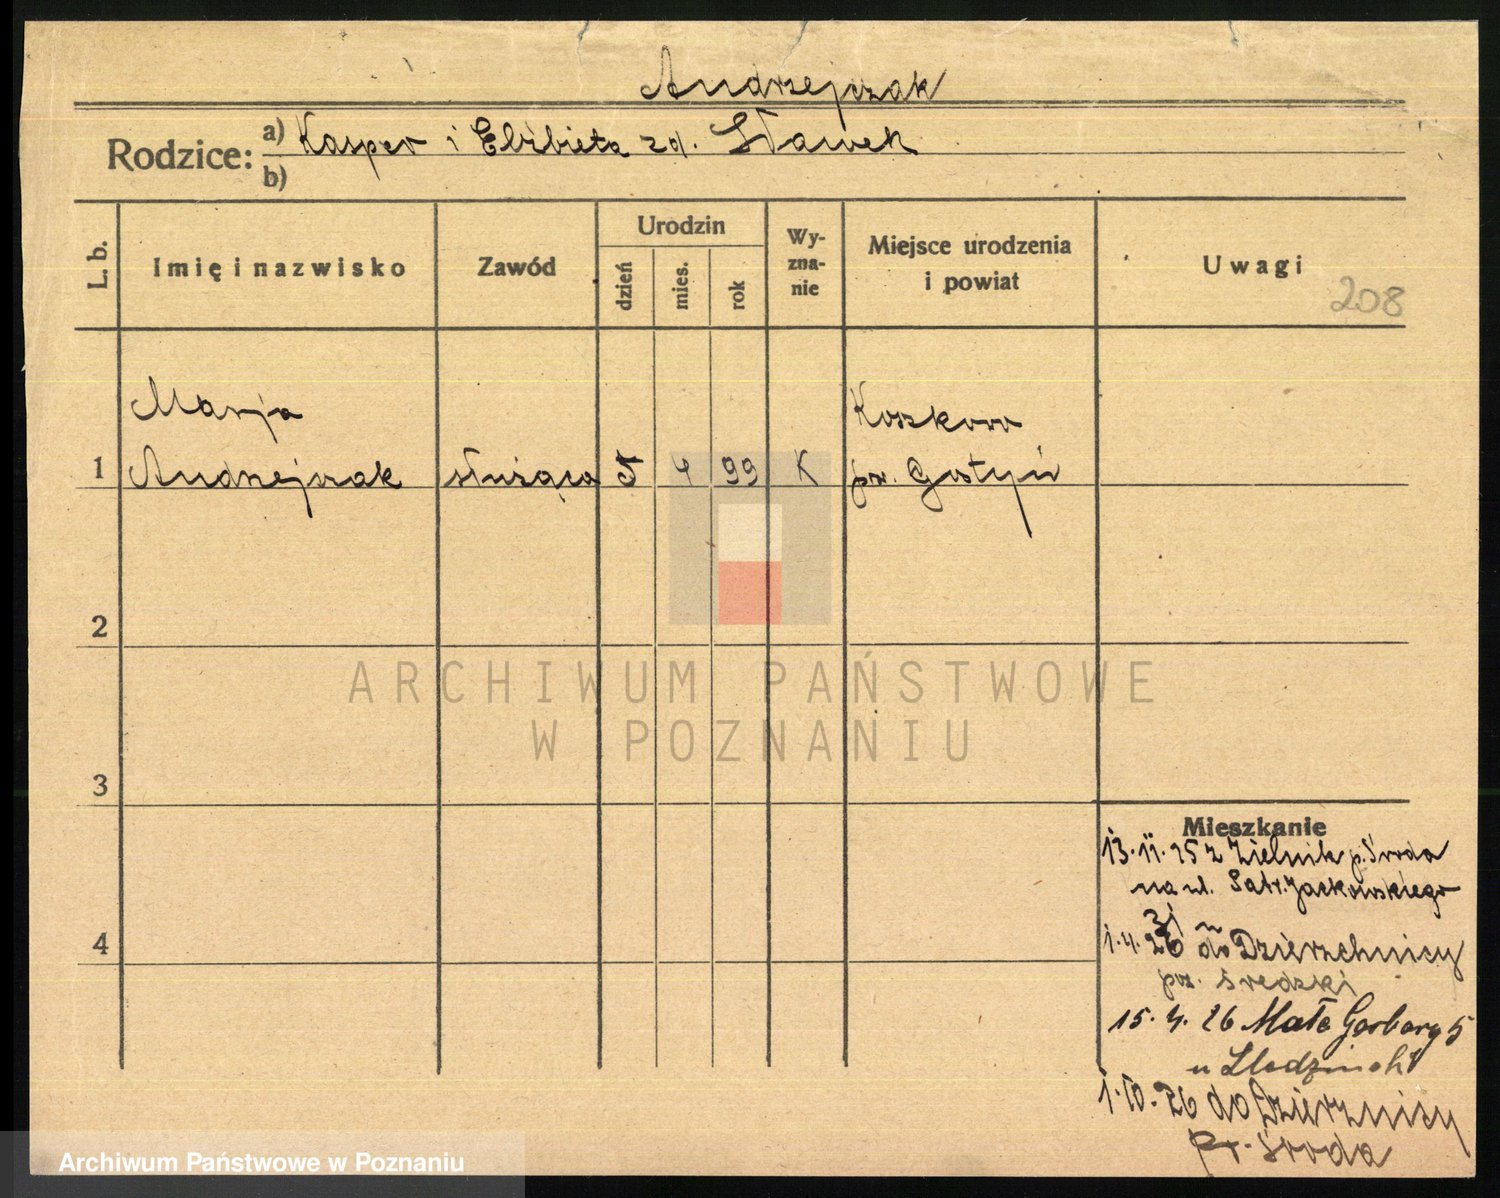 Andrzejczak
Rodzice: a) Kasper i Elżbieta zd. Sławek
b)
L. b.
Imię i nazwisko
Zawód
Urodzin
dzień
mies.
rok
Wy-
zna-
nie
Miejsce urodzenia
i powiat
Uwagi
208
Marja
Andrzejczak
1
służąca
5
4
99
K
Koszkowo
pw. Gostyń
2
3
4
Mieszkanie
13.11.25 z Zielnik p. Środa
na ul. Patr. Jackowskiego
31
1.4.26 do Dzierzchnicy
pow. Średzki
15.4.26 Małe Garbary 5
u
1.10.26 do Dzierznicy
pw. Środa
ARCHIWUM PAŃSTWOWE
W POZNANIU
Archiwum Państwowe w Poznaniu